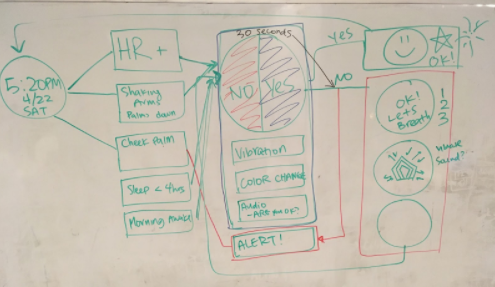 5:20PM
4/22
SAT
HR +
Shaking
Arms
Palms down
Check Palm
Sleep < 4hrs
Morning Awake
30 seconds
NO
Yes
Vibration
COLOR CHANGE
Audio
- ARE YOU OK?
ALERT!
yes
NO
OK!
OK!
Lets
Breath
1
2
3
Whale
Sound?